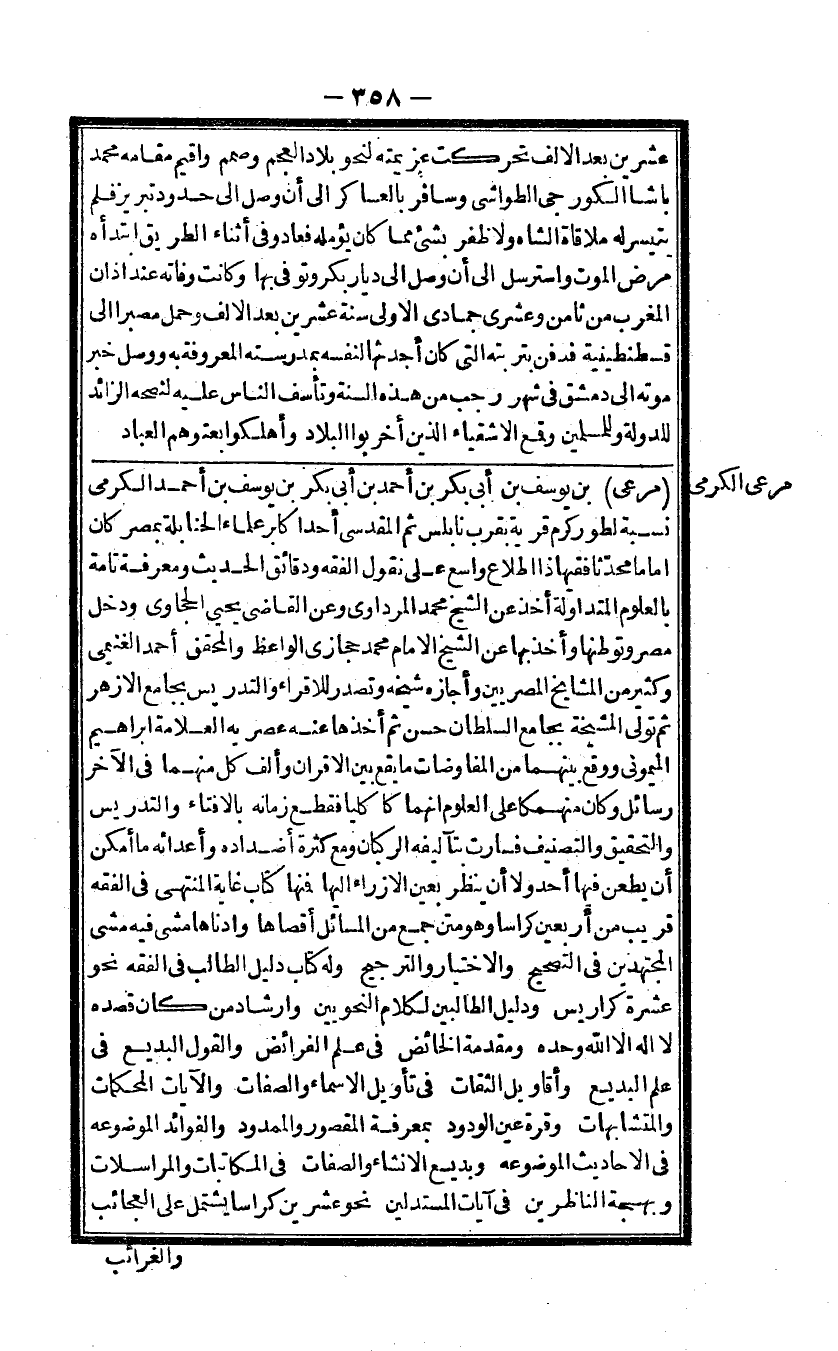 — ٣٥٨ —
عشرين بعد الالف تحركت عزيمته لنحو بلاد العجم وصمم واقيم مقامه محمد
باشا الكورجى الطواشى وسافر بالعساكر الى أن وصل الى حدود تبريز فلم
يتيسر له ملاقاة الشاه ولا ظفر بشئ مما كان يؤمله فعاد وفى أثناء الطريق ابتدأه
مرض الموت واسترسل الى أن وصل الى ديار بكر وتوفى بها وكانت وفاته عند اذان
المغرب من ثامن وعشرى جمادى الاولى سنة عشرين بعد الالف وحمل مصبرا الى
قسطنطينية فدفن بتربته التى كان أجدثها لنفسه بمدرسته المعروفة به ووصل خبر
موته الى دمشق فى شهر رجب من هذه السنة وتأسف الناس عليه لنصحه الزائد
للدولة وللمسلمين وقمع الاشقياء الذين أخربوا البلاد وأهلكوا بعتوهم العباد
مرعى الكرمى
(مرعى) بن يوسف بن أبى بكر بن أحمد بن أبى بكر بن يوسف بن أحمد الكرمى
نسبة لطور كرم قرية بقرب نابلس ثم المقدسى أحد اكابر علماء الحنابلة بمصر كان
اماما محدثا فقيها ذا اطلاع واسع على نقول الفقه ودقائق الحديث ومعرفة تامة
بالعلوم المتداولة أخذ عن الشيخ محمد المرداوى وعن القاضى يحيى الحجاوى ودخل
مصر وتوطنها وأخذ بها عن الشيخ الامام محمد حجازى الواعظ والمحقق أحمد الغنيمى
وكثير من المشايخ المصريين وأجازه شيخه وتصدر للاقراء والتدريس بجامع الازهر
ثم تولى المشيخة بجامع السلطان حسن ثم أخذها عنه عصريه العلامة ابراهيم
الميمونى ووقع بينهما من المفاوضات ما يقع بين الاقران وألف كل منهما فى الآخر
رسائل وكان منهمكا على العلوم انهماكا كليا فقطع زمانه بالافتاء والتدريس
والتحقيق والتصنيف فسارت بتآليفه الركان ومع كثرة أضداده وأعدائه ما أمكن
أن يطعن فيها أحد ولا أن ينظر بعين الازراء اليها فنها كتاب غاية المنتهى فى الفقه
قريب من أربعين كراسا وهو متن جمع من المسائل أقصاها وادناها مشى فيه مشى
المجتهدين فى التصحيح والاختيار والترجيح وله كتاب دليل الطالب فى الفقه نحو
عشرة كراريس ودليل الطالبين لكلام النحويين وارشاد من كان قصده
لا اله الا الله وحده ومقدمة الخائض فى علم الفرائض والقول البديع فى
علم البديع وأقاويل الثقات فى تأويل الاسماء والصفات والآيات المحكمات
والمتشابهات وقرة عين الودود بمعرفة المقصور والممدود والفوائد الموضوعه
فى الاحاديث الموضوعه وبديع الانشاء والصفات فى المكاتبات والمراسلات
وبهجة الناظرين فى آيات المستدلين نحو عشرين كراسا يشتمل على العجائب
والغرائب